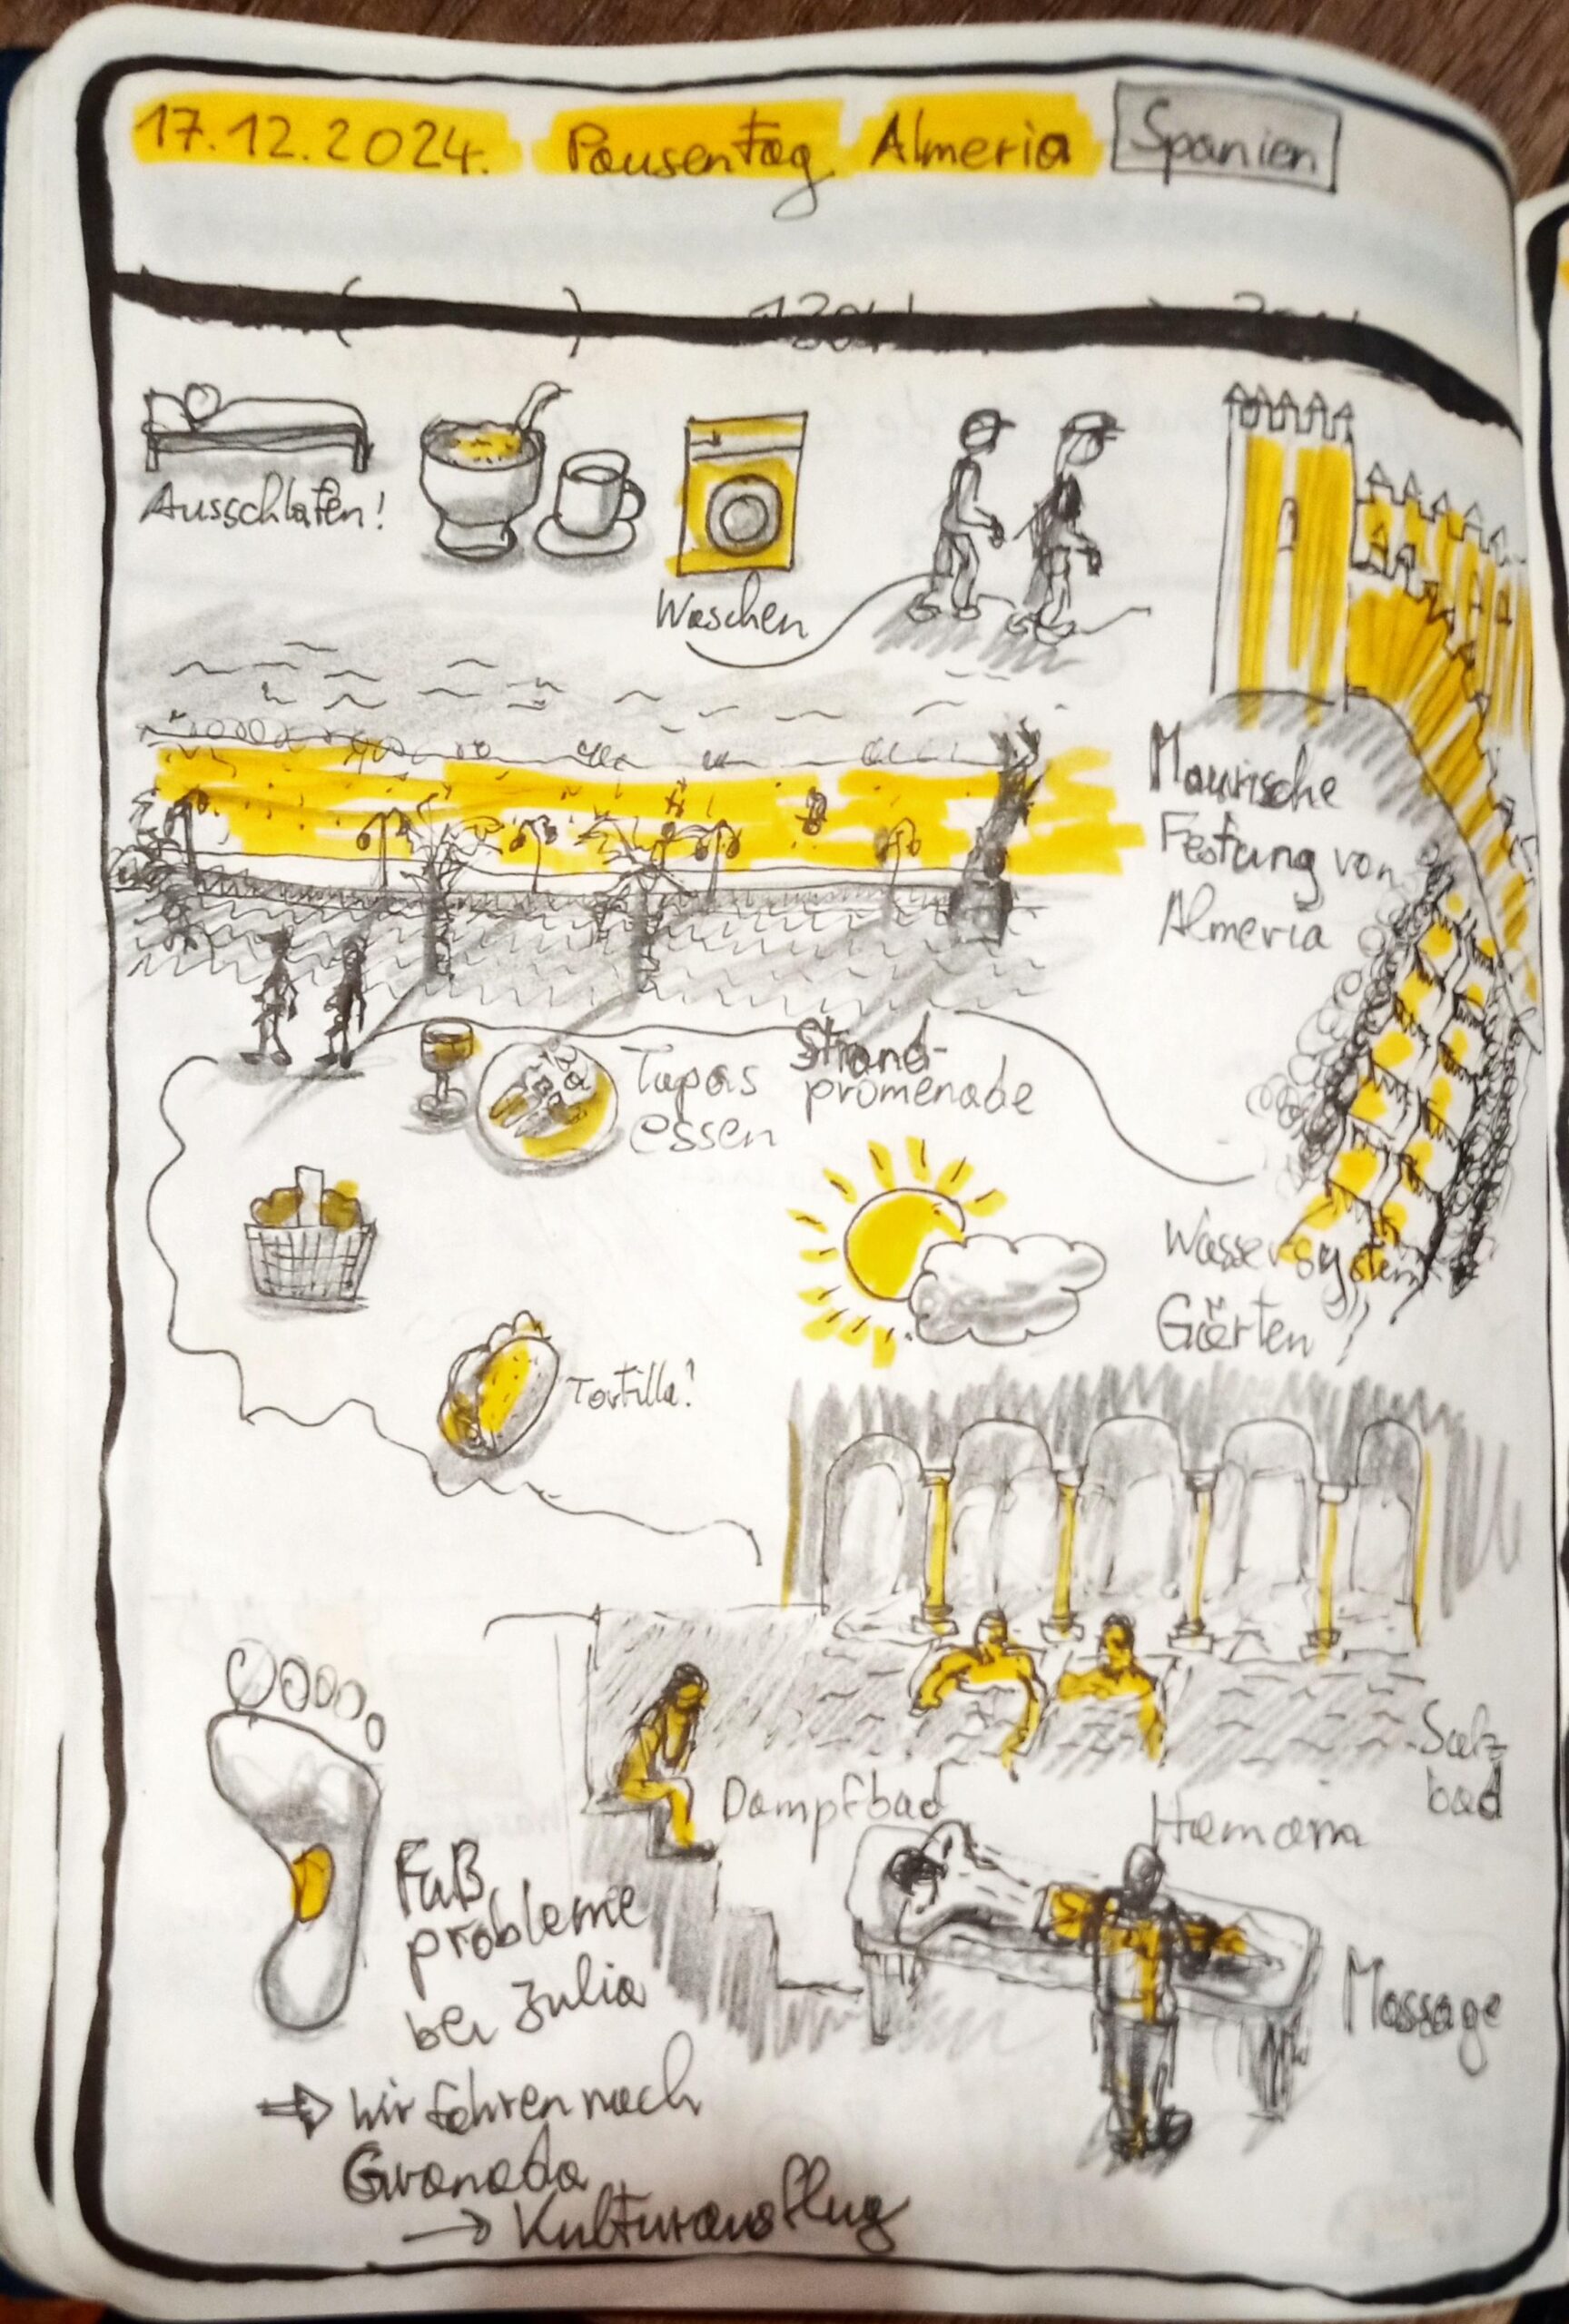 17.12.2024. Pausentag Almeria Spanien
Ausschlafen!
Waschen
Maurische
Festung von
Almeria
Tapas
essen
Strand-
promenade
Wassersystem
Gärten!
Tortilla!
Salz
bad
Dampfbad
Hamam
Massage
Fuß
probleme
bei Julia
⇒ wir fahren nach
Granada
→ Kulturausflug